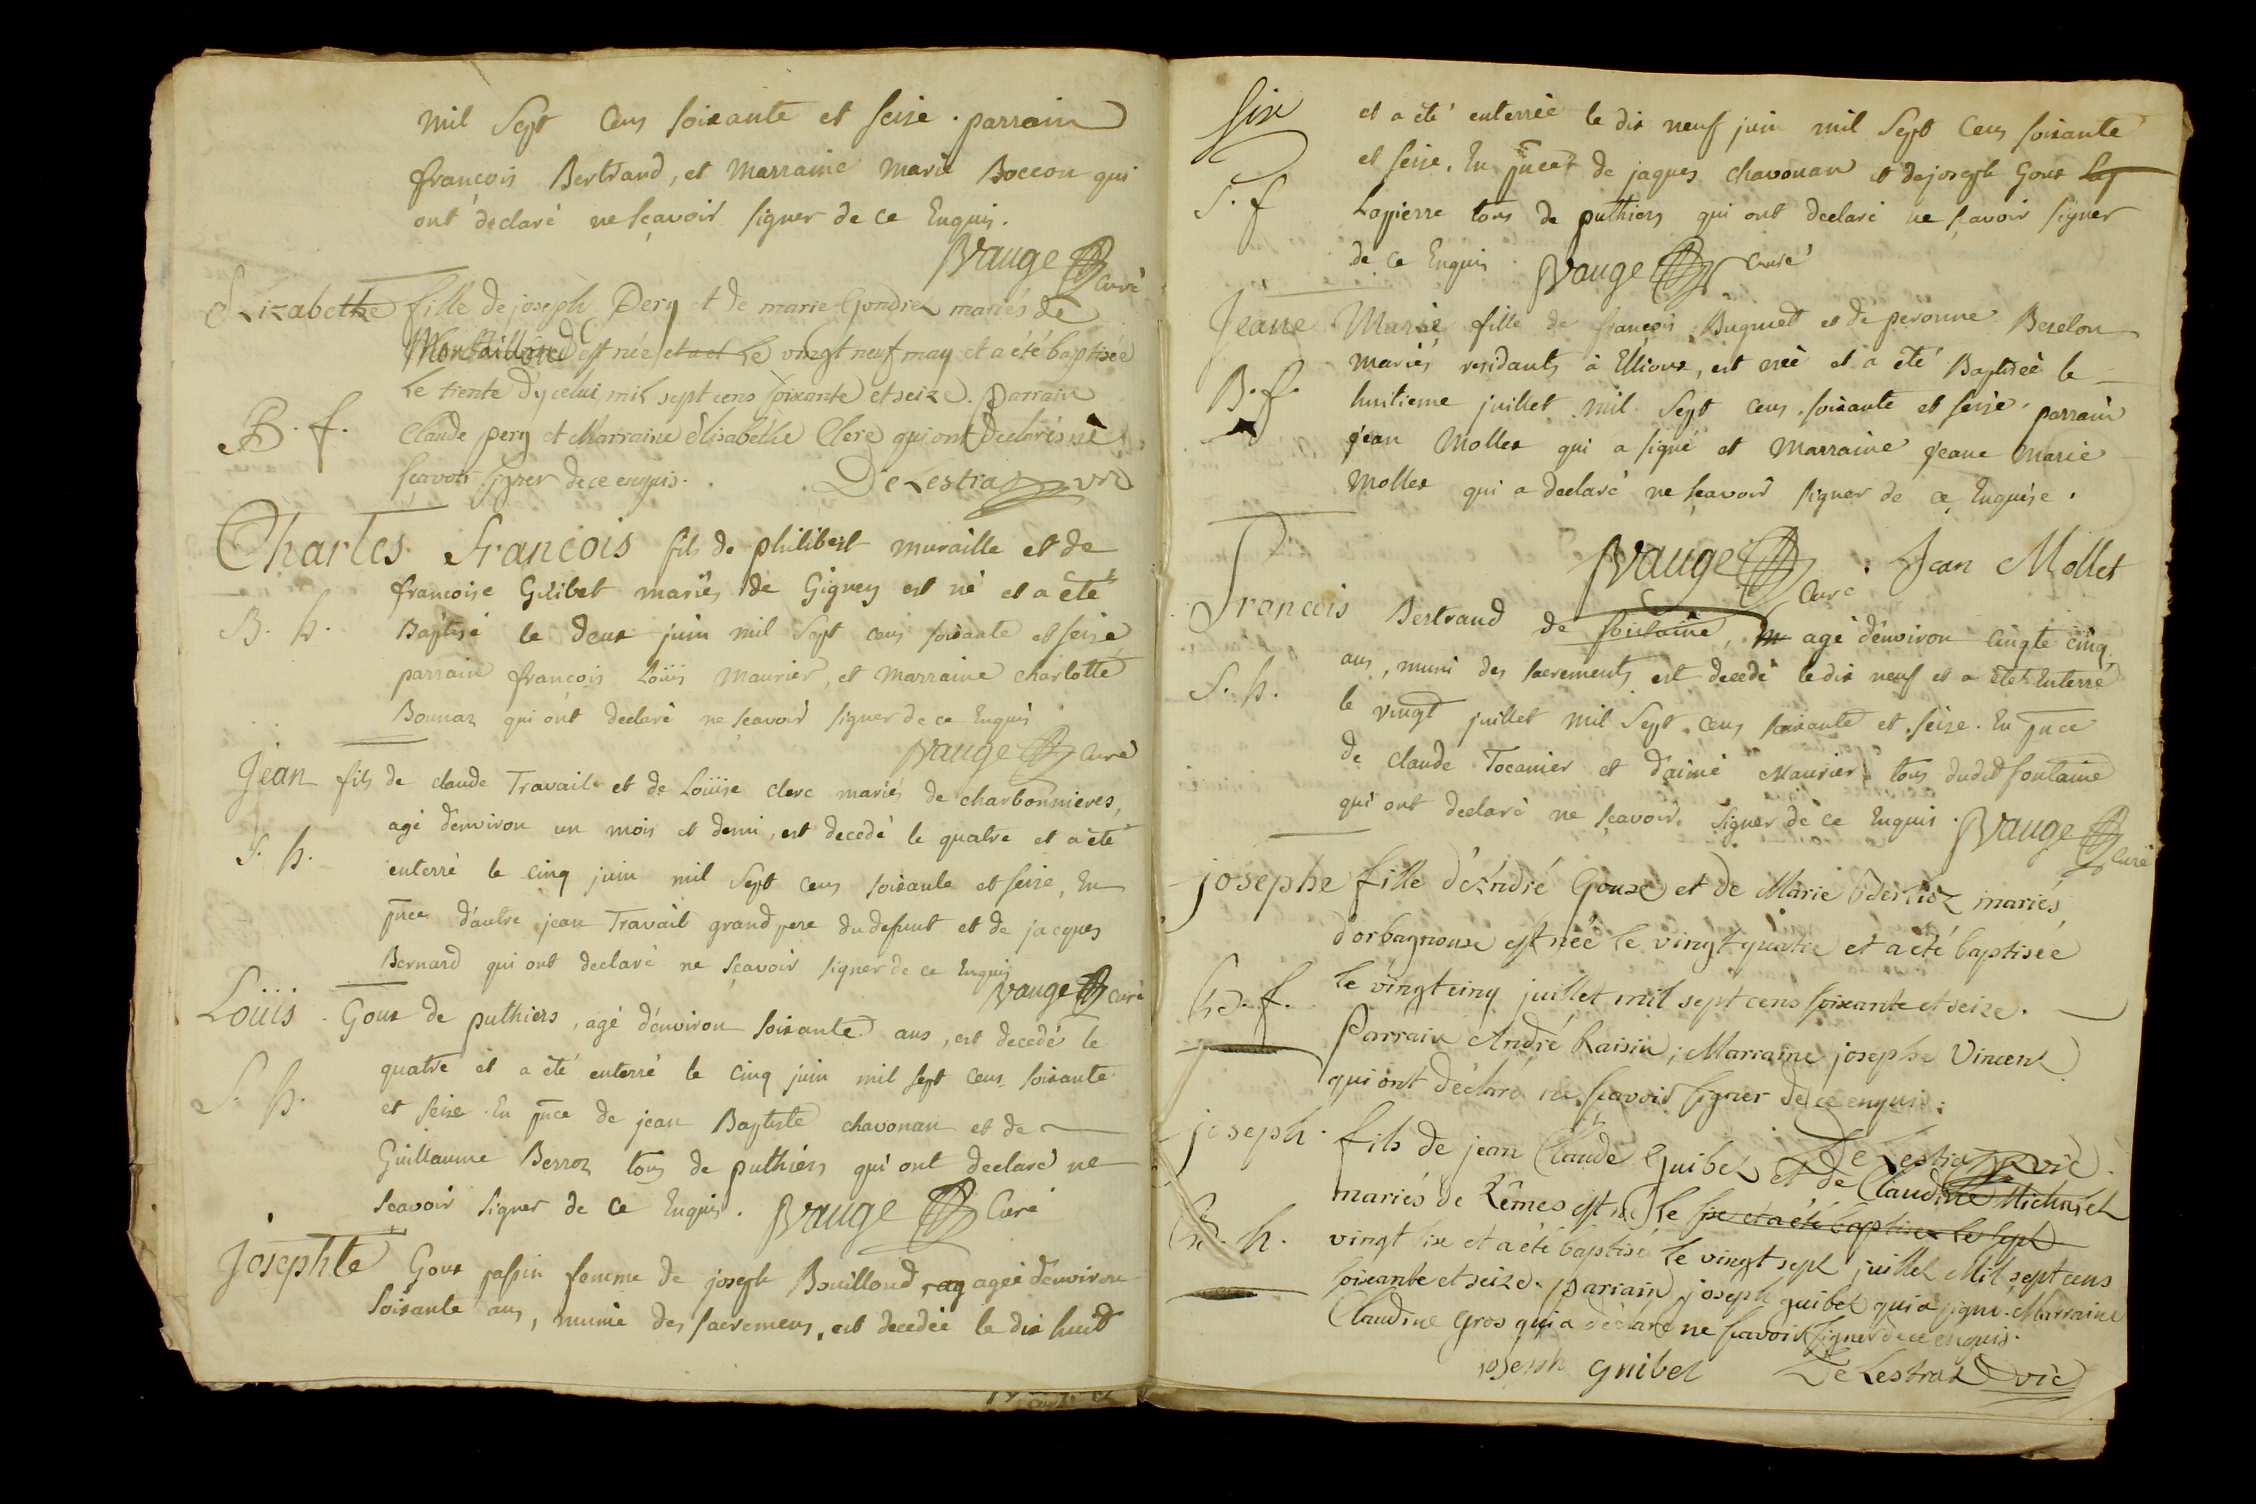 mil Sept Cens soixante et seize . parrain
françois Bertrand, et Marraine Marie Boccon qui
ont déclaré ne sçavoir signer de ce Enquis.
Vauge Curé
Elizabethe fille de joseph Pery et de marie Gondrel mariés de
est née et a et Le vingt neuf may et a été baptisée
Le trente dycelui mil sept cens soixante et seize. Parrain
B. f.
Claude pery et Marraine élisabethe Clerc qui ont declarés ne
scavoir signer de ce enquis.
De Lestra vic
Charles François fils de philibert muraille et de
françoise Gilibet mariés de Gigney est né et a été
B. h.
Baptisé le deux juin mil Sept cens soixante et seize
parrain françois Loüis Maurier, et Marraine charlotte
Bonnaz qui ont declaré ne sçavoir signer de ce Enquis
Vauge Curé
Jean fils de claude Travail et de Loüise clerc mariés de charbonnieres,
agé d'environ un mois et demi, est decedé le quatre et a été
S. h.
enterré le cinq juin mil Sept cens soixante et seize, En
pnce d'autre jean Travail grand pere du defunt et de jacques
Bernard qui ont declaré ne sçavoir signer de ce Enquis
Vauge Curé
Loüis Goux de puthiers, agé d'environ soixante ans, est decedé le
quatre et a été enterré le cinq juin mil sept cens soixante
S. h.
et seize. En pnce de jean Baptiste chavonan et de
Guillaume Berroz tous de puthiers qui ont declaré ne
sçavoir signer de ce Enquis. Vauge Curé
Josephte Goux jaspin femme de joseph Bouilloud, ag agée d'environ
soixante ans, munie des sacremens, est decedée le dix huit
six
et a été enterrée le dix neuf juin mil Sept Cens soixante
et seize. En pnce de jaques chavonan et de joseph Goux Lap
S. f
Lapierre tous de puthiers qui ont declaré ne sçavoir signer
de ce Enquis. Vauge Curé
Jeane Marie fille de françois Bugniet et de peronne Berelon
mariés residants à Ellioux, est née et a été Baptisée le
B. f.
huitieme juillet mil Sept cens soixante et seize. parrain
jean Mollet qui a signé et Marraine jeane Marie
Mollet qui a declaré ne sçavoir signer de ce, Enquise.
Vauge Curé Jean Mollet
François Bertrand de fontaine, agé d'environ cinqte cinq
ans, muni des sacrements est decedé le dix neuf et a été Enterré
S. h.
le vingt juillet mil Sept cens soixante et seize. En pnce
de claude Tocanier et d'aimé Maurier tous dudit fontaine
qui ont declaré ne sçavoir signer de ce Enquis. Vauge Curé
josephe fille d'éndré Goux et de Marie mariés
dorbagnoux est née le vingt quatre et a été baptisée
B. f.
le vingt cinq juillet mil sept cens soixante et seize.
Parrain André Raisin; Marraine josephe Vincent
qui ont déclaré ne scavoir signer de ce enquis.
De Lestra vic
joseph fils de jean Claude Guibel et de Claudine Michalet
mariés de Rêmes est né Le six et a été baptisé le sept
B. h.
vingt six et a été baptisé Le vingt sept juillet Mil sept cens
soixante et seize. parrain joseph guibel qui a signé. Marraine
Claudine Gros qui a déclaré ne scavoir signer de ce enquis.
joseph guibel De Lestra vic